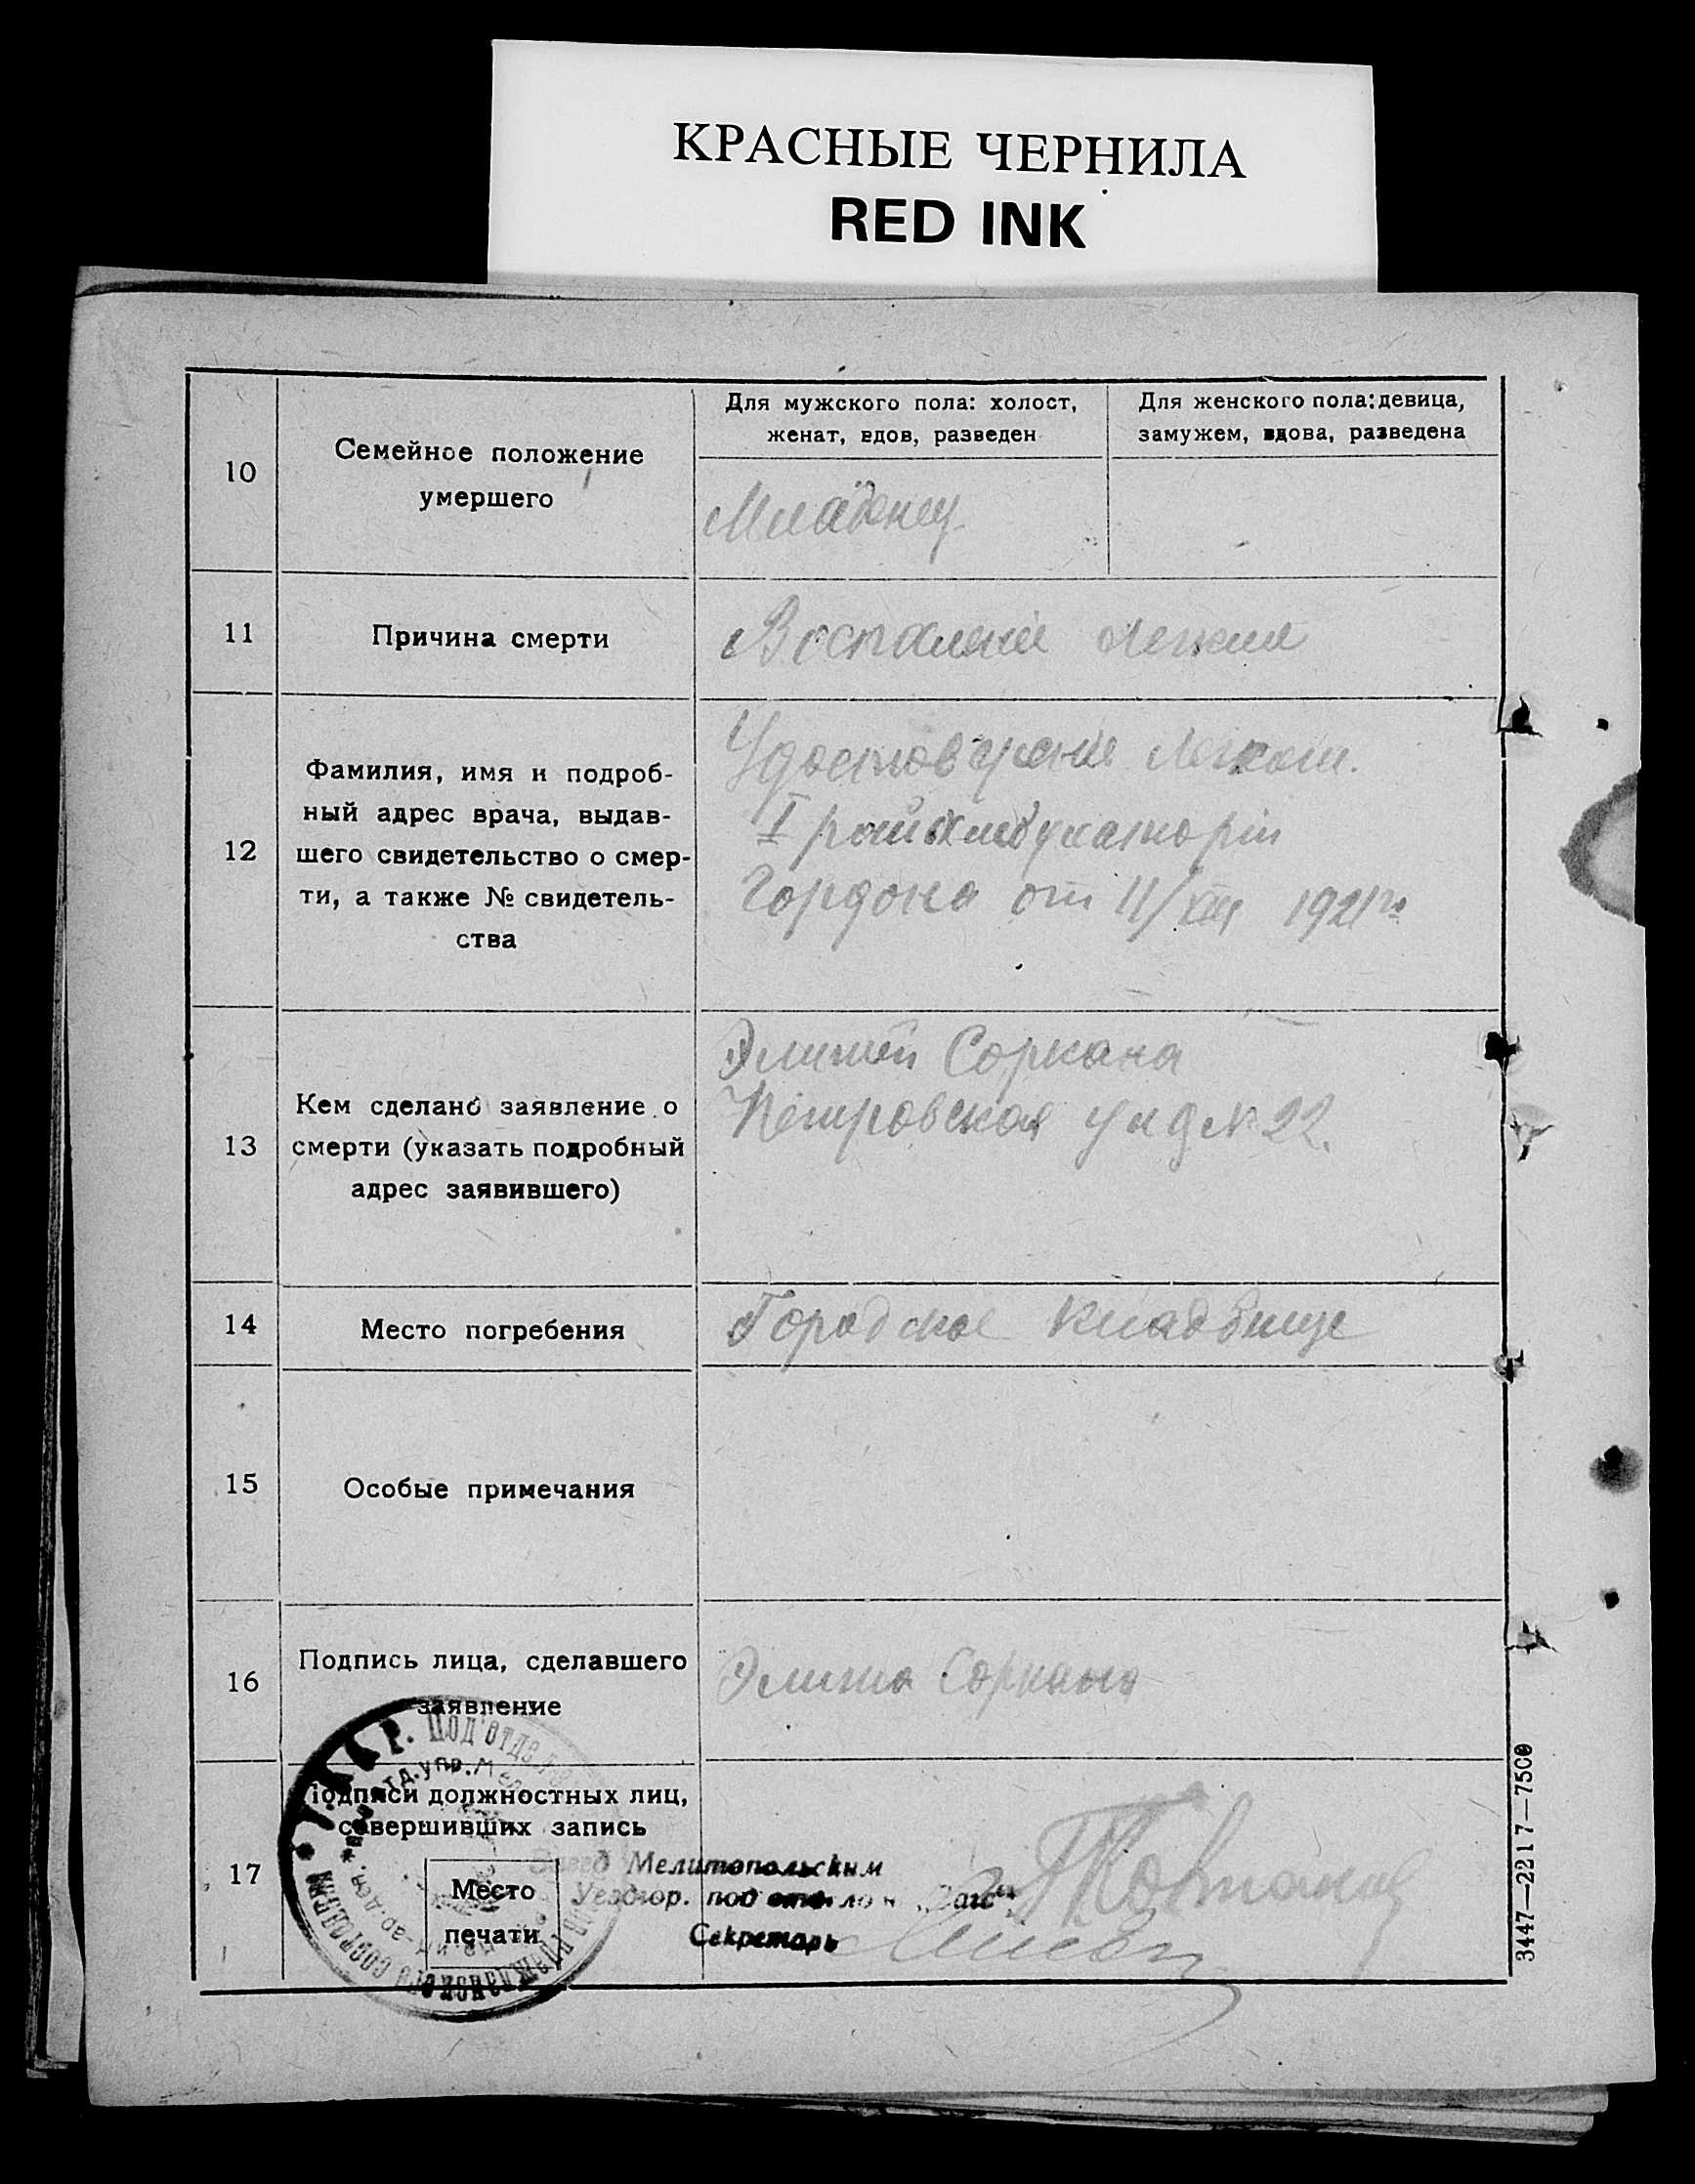 КРАСНЫЕ ЧЕРНИЛА
RED INK
10
Семейное положение
умершего
Для мужского пола: холост,
женат, вдов, разведен
Для женского пола: девица,
замужем, вдова, разведена
Младенец
11
Причина смерти
Воспаление легких
12
Фамилия, имя и подроб-
ный адрес врача, выдав-
шего свидетельство о смер-
ти, а также № свидетель-
ства
Удостоверение
I
Гордона от 11/XII 1921 г.
13
Кем сделано заявление о
смерти (указать подробный
адрес заявившего)
Соркана
Петровская ул д № 22.
14
Место погребения
Городское кладбище
15
Особые примечания
16
Подпись лица, сделавшего
заявление
Соркана
17
Подписи должностных лиц,
совершивших запись
Место
печати
Завед Мелитопольским
Уездгор. подотделом „Загс“
Секретарь
У.С.С.Р. Под'отдел
3447—2217—7500